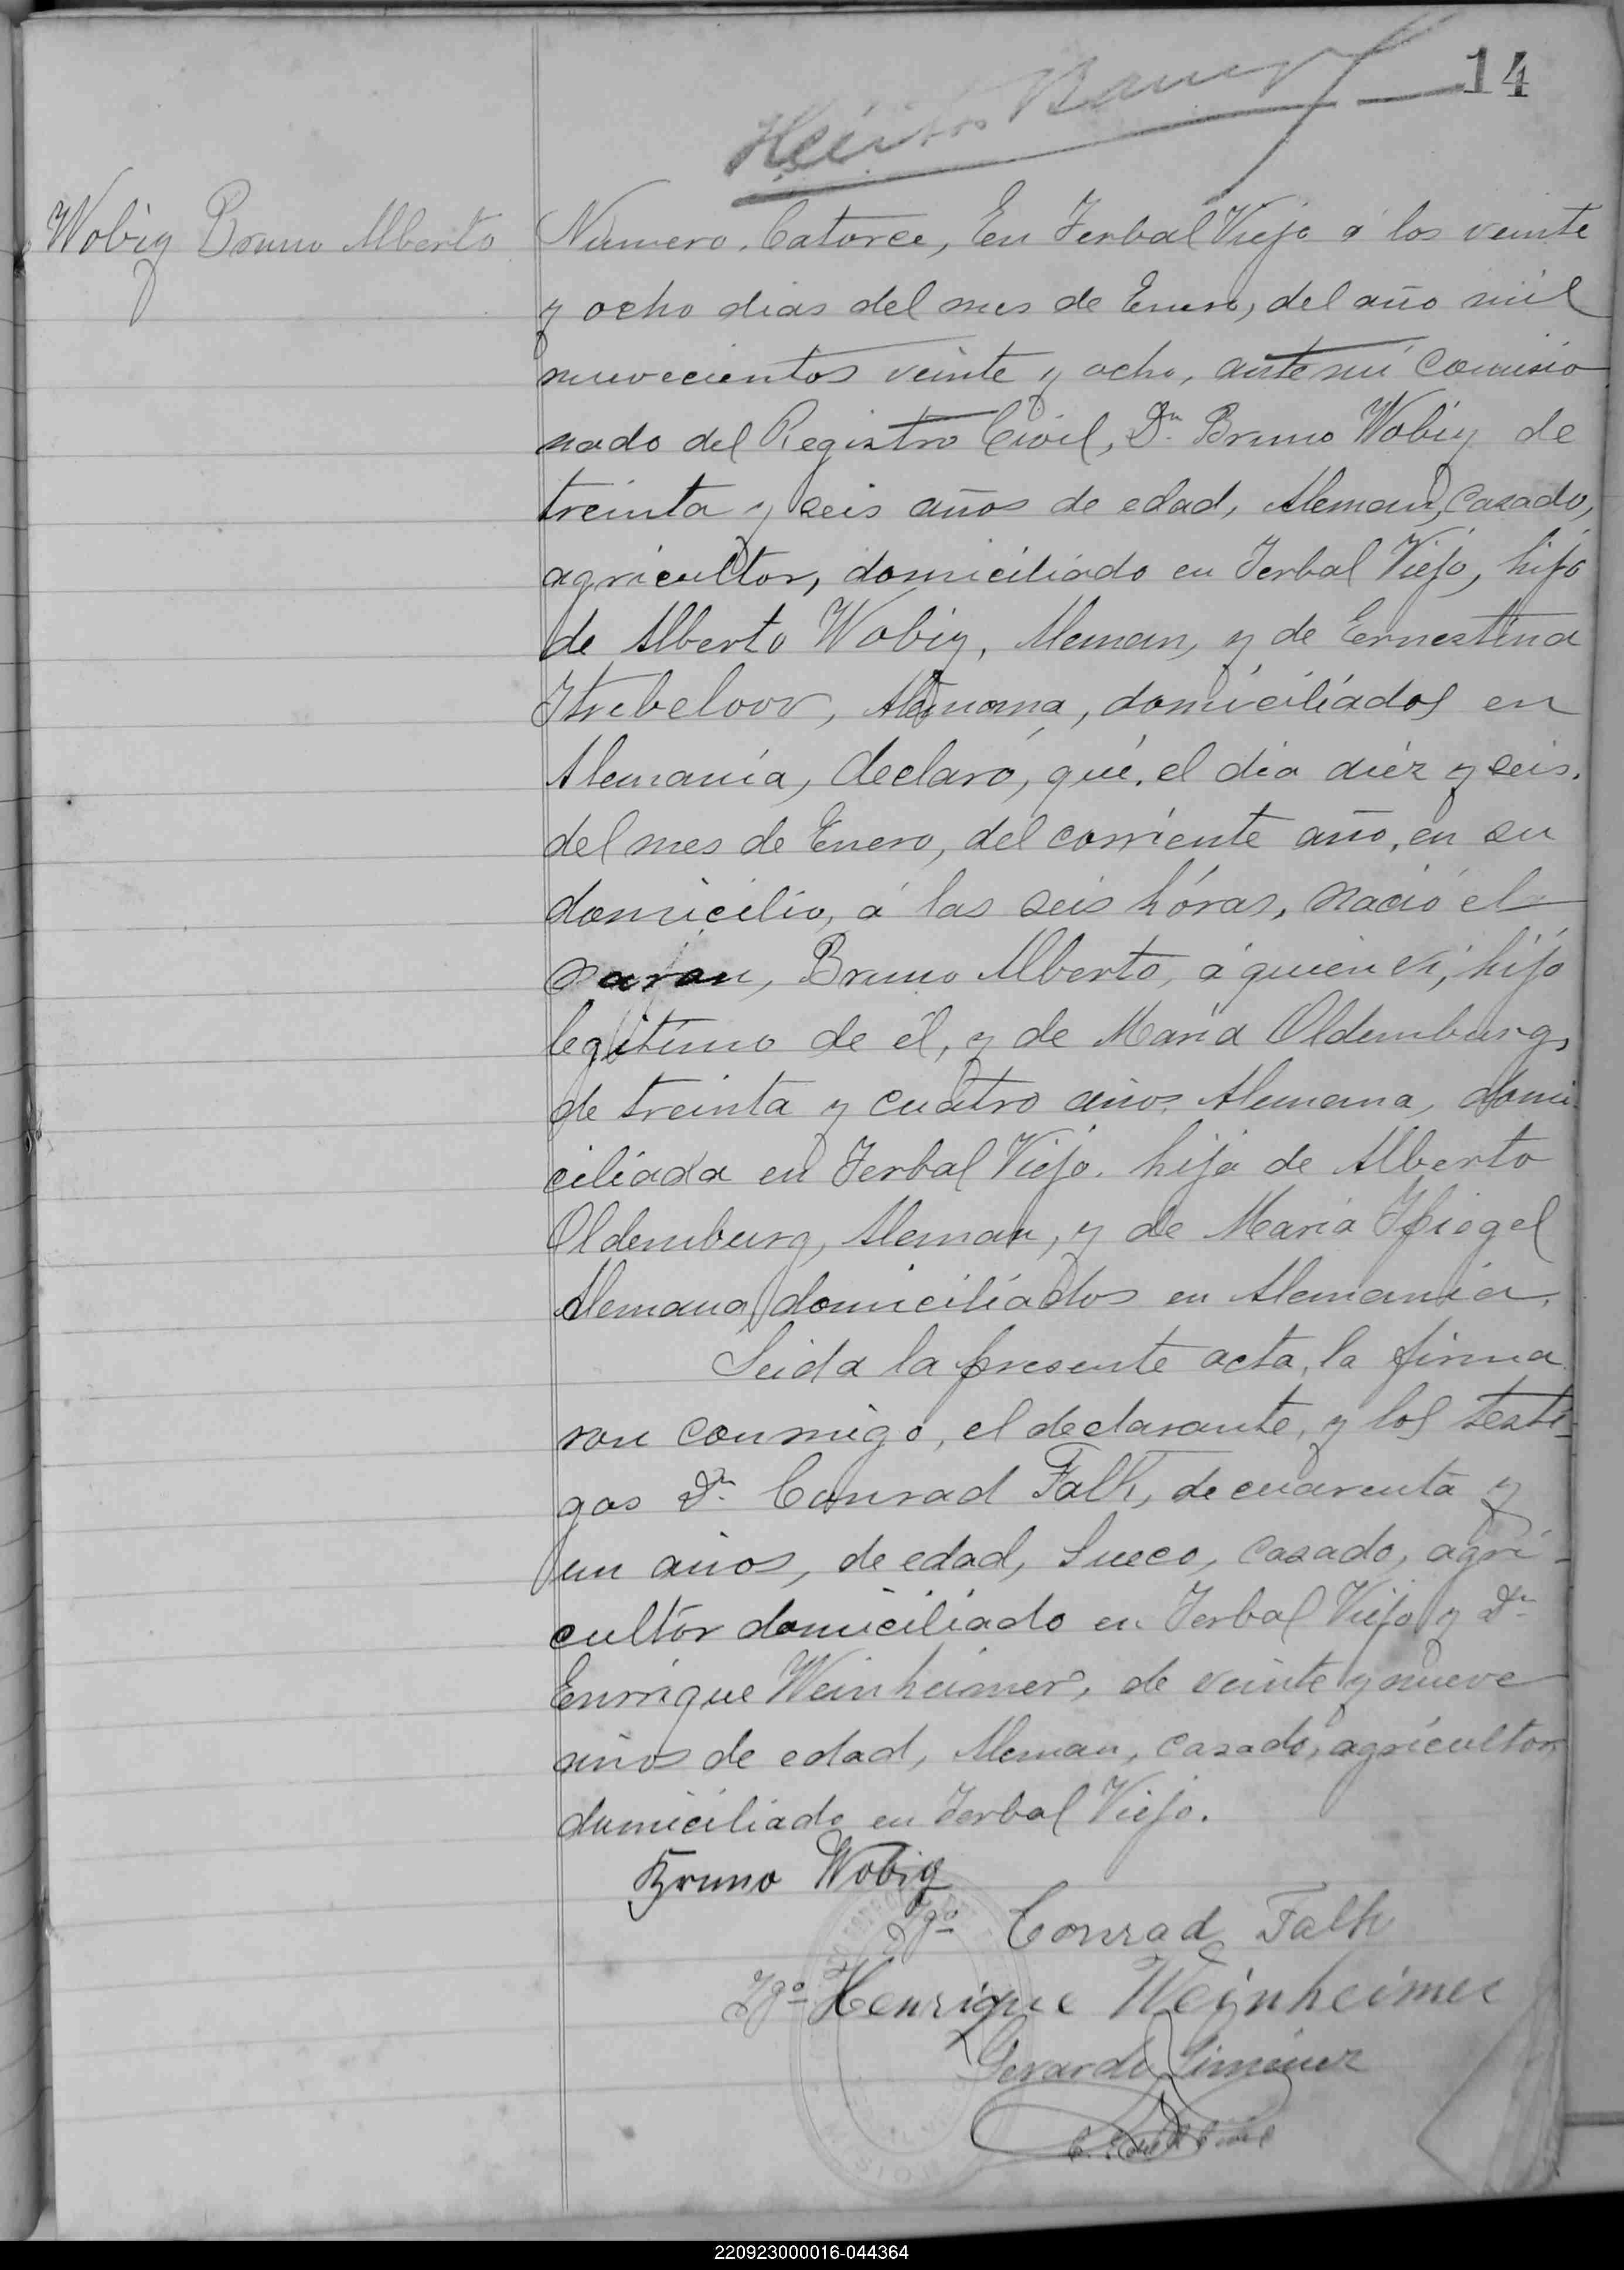 14
Wobig Bruno Alberto
Número. Catorce, En Yerbal Viejo á los veinte
y ocho dias del mes de Enero, del año mil
nuevecientos veinte y ocho, ante mi Comisio
nado del Registro Civil, Dn. Bruno Wobig de
treinta y seis años de edad, Aleman, Casado,
agricultor, domiciliado en Yerbal Viejo, hijo
de Alberto Wobig, Aleman, y de Ernestina
Alemana, domiciliados en
Alemania, declaró, qué, el dia diéz y seis.
del mes de Enero, del corriente año, en su
domicilio, á las seis hóras, nació el
varon, Bruno Alberto, á quien vi, hijo
legitimo de él, y de Maria Oldemburg,
de treinta y cuatro años Alemana, domi
ciliada en Yerbal Viejo. hija de Alberto
Oldemburg, Aleman, y de Maria Spiegel
Alemana domiciliados en Alemania.
Leida la presente acta, la firma
ron conmigo, el declarante, y los testi-
gos Dn. Conrad Falk, de cuarenta y
un años, de edad, Sueco, casado, agri-
cultor domiciliado en Yerbal Viejo y Dn.
Enrrique Weinheimer, de veinte y nueve
años de edad, Aleman, casado, agricultor
domiciliado en Yerbal Viejo.
Bruno Wobig
Tgo Conrad Falk
Tgo Henrique Weinheimer
Gerardo Gimenez
220923000016-044364